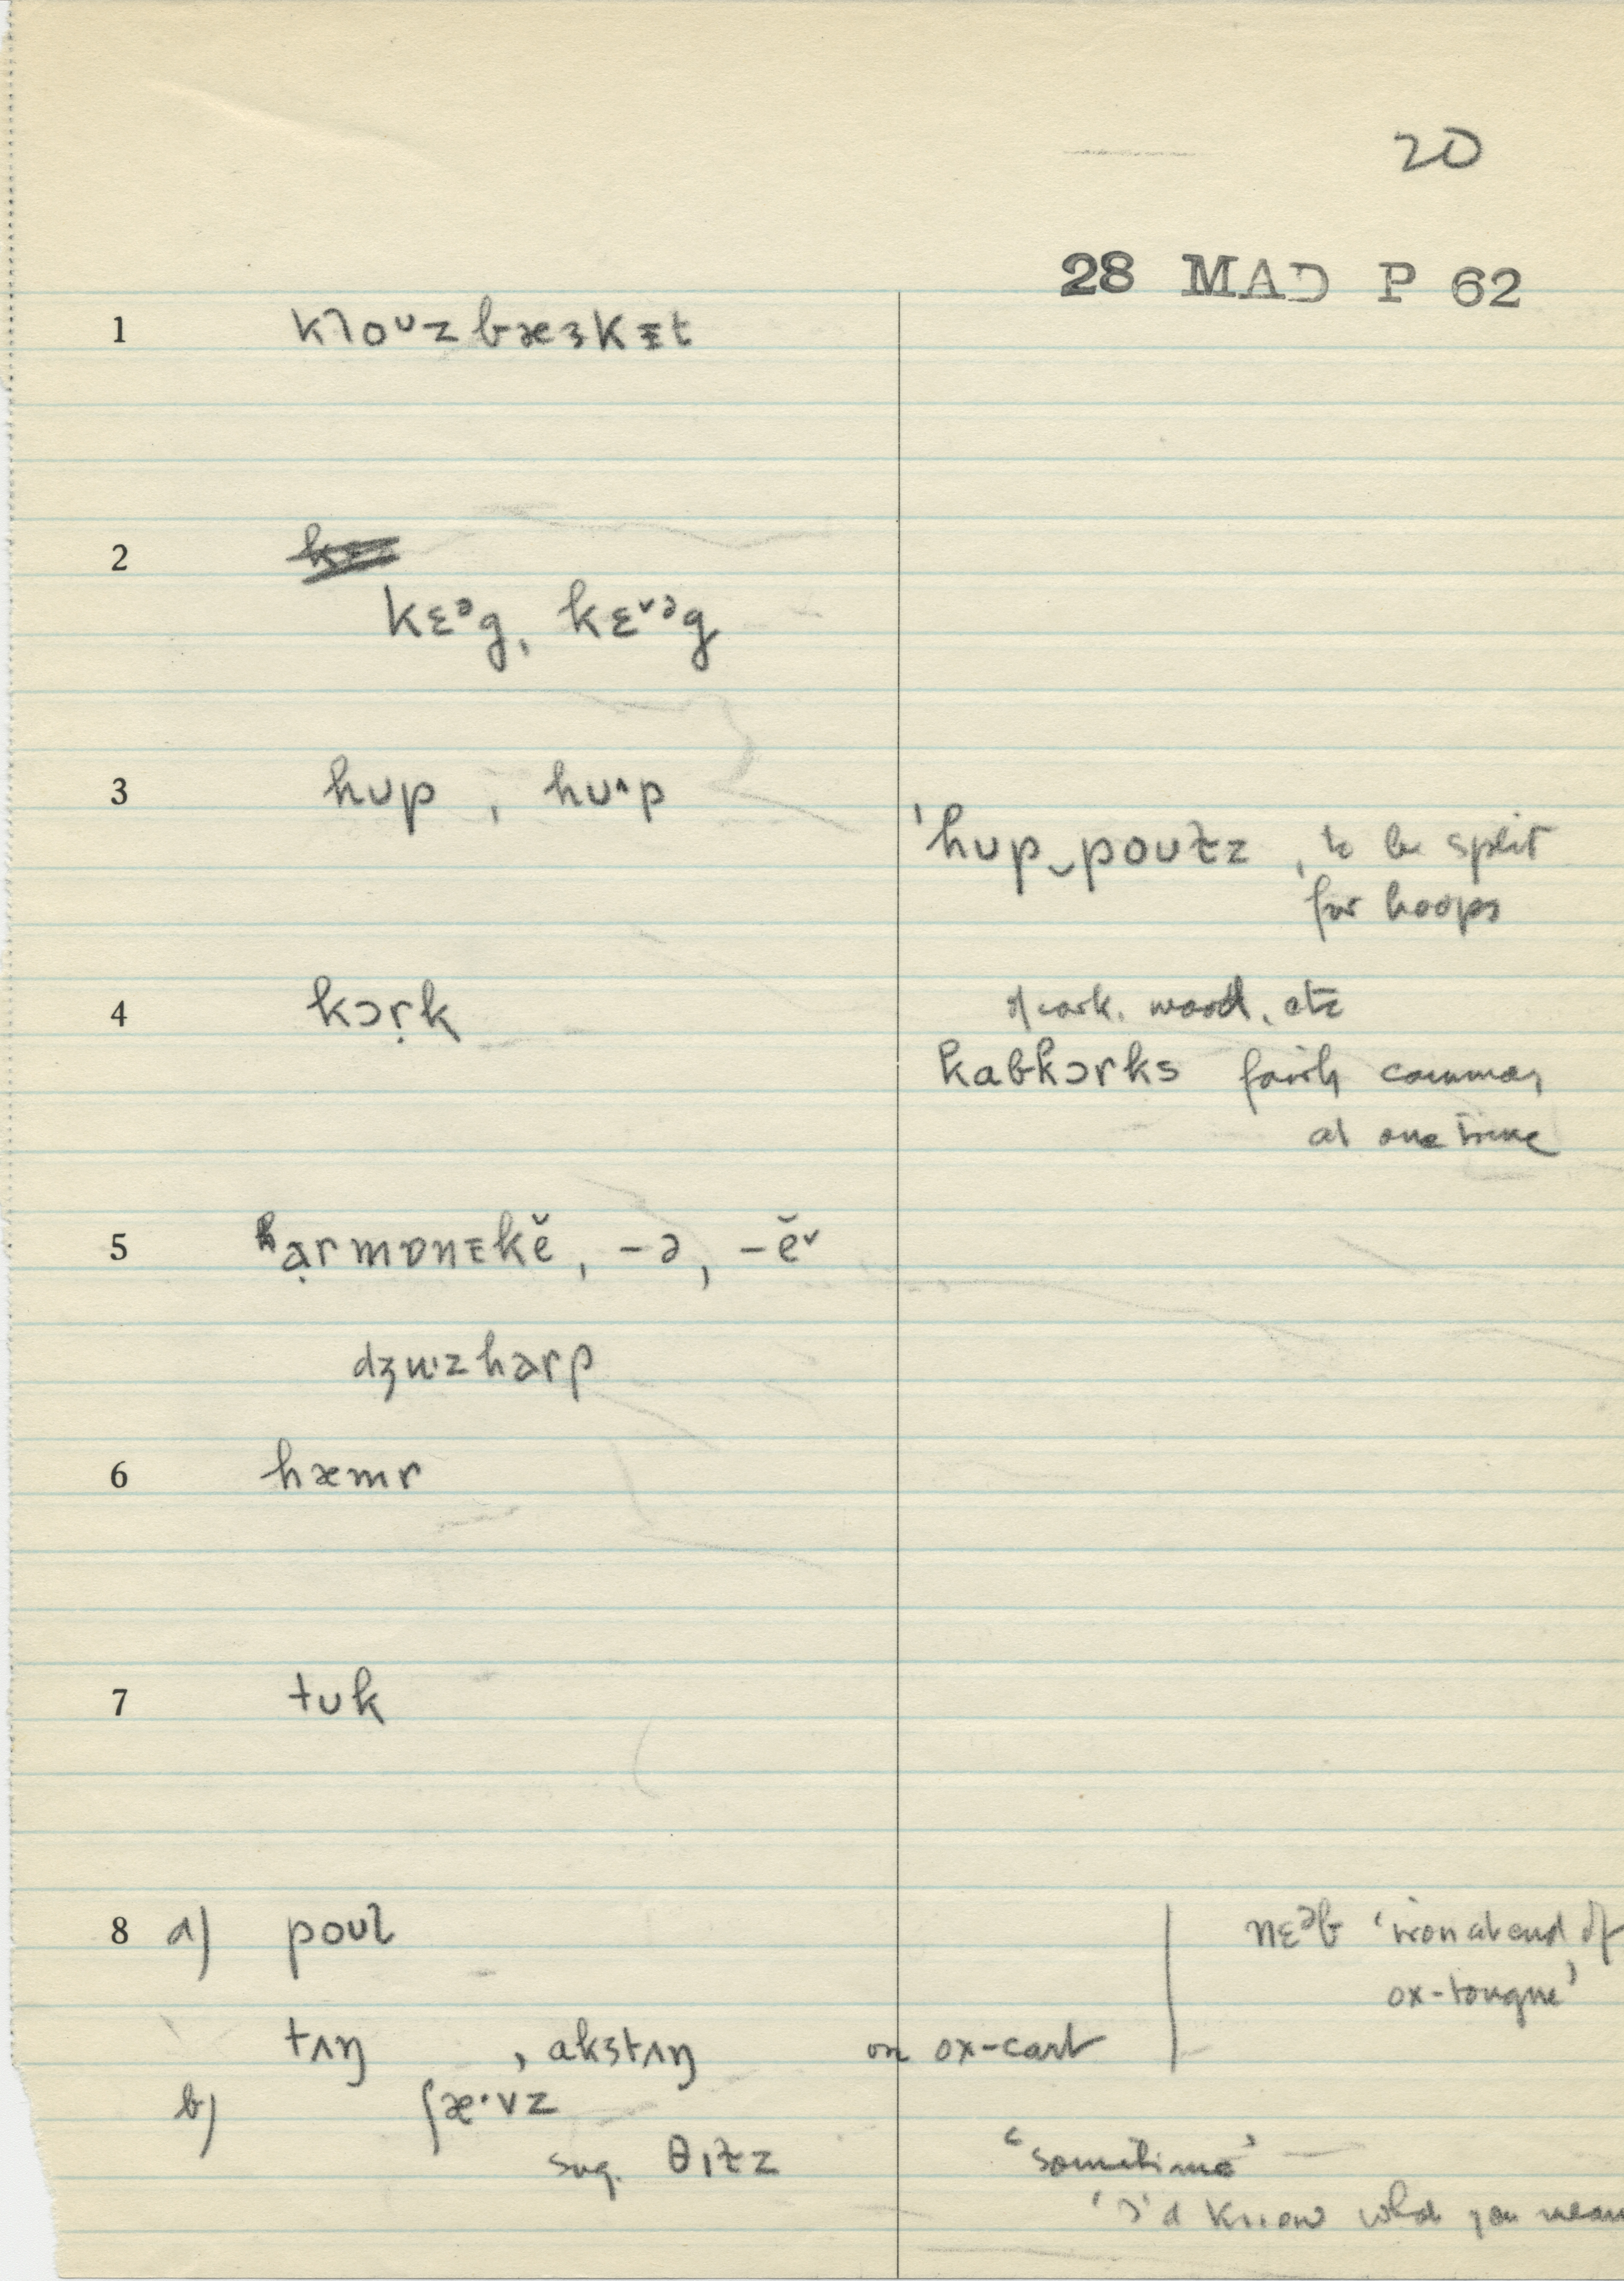 20
28 MAD P 62
1 kloᴜzbæɜkᵻt
2
kɛᵊg, kɛ˅ᵊg
3 hup , hu^p
'hup‿pouɫz , to be split
for hoops
4 kɔṛk
of cork. wood, etc
kabkɔrks fairly common
at one time
5 hạrmɒnɪkĕ, -ə, -ĕ˅
dʒuzharp
6 hæmr
7 tuk
8 a) poul
nɛᵊb 'iron at end of
ox-tongue'
tʌŋ , akstʌŋ on ox-cart
b) ʃæ·vz
sug. θɪɫz 'sometimes' —
'I'd know what you mean